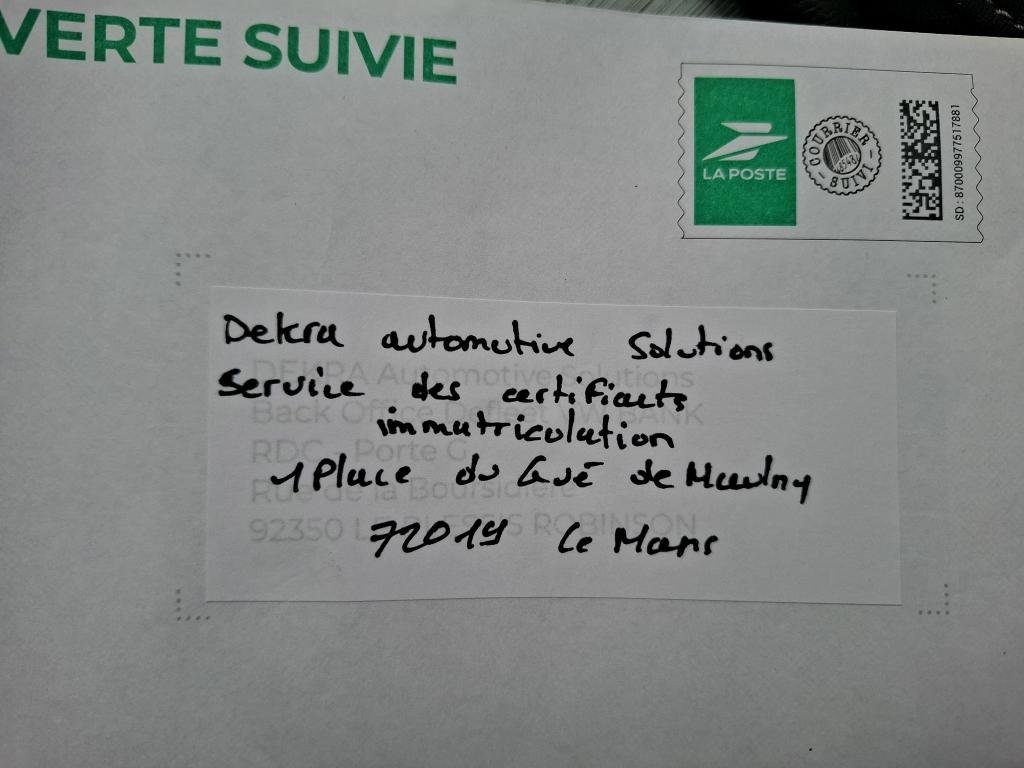 VERTE SUIVIE
LA POSTE
COURRIER
SUIVI
SD : 870009977517881
Dekra automotive Solutions
Service des certificats
immatriculation
1 Place du Gué de Maulny
72019 Le Mans
DEKRA Automotive Solutions
Back Office Defleet VW BANK
RDC - Porte G
Rue de la Boursidière
92350 LE PLESSIS ROBINSON